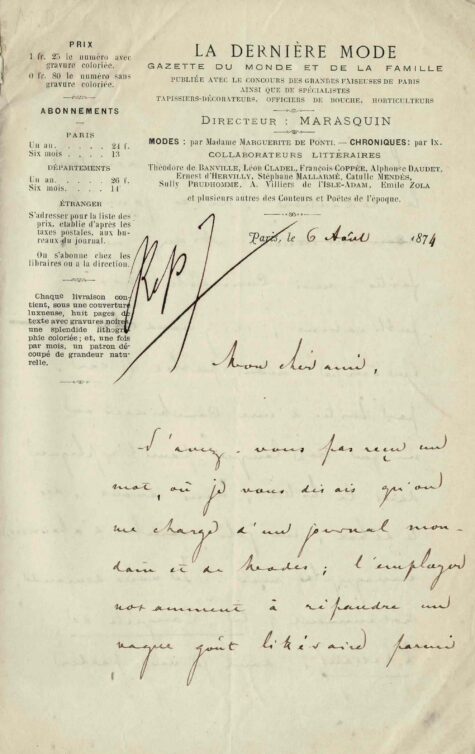 PRIX
1 fr. 25 le numéro avec
gravure coloriée.
0 fr. 80 le numéro sans
gravure coloriée.
ABONNEMENTS
PARIS
Un an. . . . . . 24 f.
Six mois . . . . 13
DÉPARTEMENTS
Un an. . . . . . 26 f.
Six mois. . . . . 14
ÉTRANGER
S'adresser pour la liste des
prix, établie d'après les
taxes postales, aux bu-
reaux du journal.
On s'abonne chez les
libraires ou a la direction.
Chaque livraison con-
tient, sous une couverture
luxueuse, huit pages de
texte avec gravures noires,
une splendide lithogra-
phie coloriée; et, une fois
par mois, un patron dé-
coupé de grandeur natu-
relle.
LA DERNIÈRE MODE
GAZETTE DU MONDE ET DE LA FAMILLE
PUBLIÉE AVEC LE CONCOURS DES GRANDES FAISEUSES DE PARIS
AINSI QUE DE SPÉCIALISTES
TAPISSIERS-DÉCORATEURS, OFFICIERS DE BOUCHE, HORTICULTEURS
DIRECTEUR : MARASQUIN
MODES : par Madame MARGUERITE DE PONTI. — CHRONIQUES: par Ix.
COLLABORATEURS LITTÉRAIRES
Théodore de BANVILLE, Léon CLADEL, François COPPÉE, Alphonse DAUDET,
Ernest d'HERVILLY, Stéphane MALLARMÉ, Catulle MENDÈS,
Sully PRUDHOMME, A. Villiers de l'ISLE-ADAM, Emile ZOLA
et plusieurs autres des Conteurs et Poètes de l'époque.
Paris, le 6 Août 1874
Rep
Mon cher ami,
N'avez-vous pas reçu un
mot, où je vous disais qu'on
me charge d'un journal mon-
dain et de Modes; l'employer
notamment à répandre un
vague goût littéraire parmi